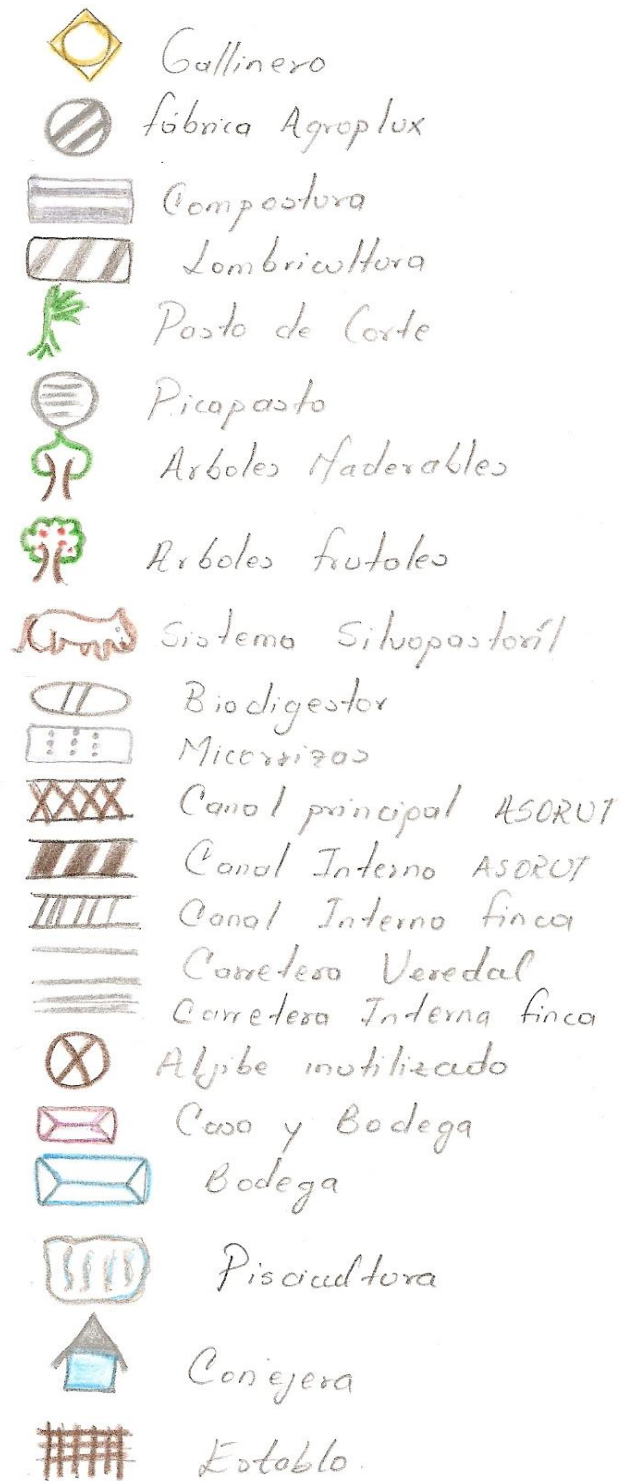 Gallinero
fábrica Agroplux
Compostura
Lombricultura
Pasto de Corte
Picapasto
Arboles Maderables
Arboles frutales
Sistema Silvopastoríl
Biodigestor
Micorrizas
Canal principal ASORUT
Canal Interno ASORUT
Canal Interno finca
Carretera Veredal
Carretera Interna finca
Aljibe inutilizado
Casa y Bodega
Bodega
Piscicultura
Conejera
Establo.